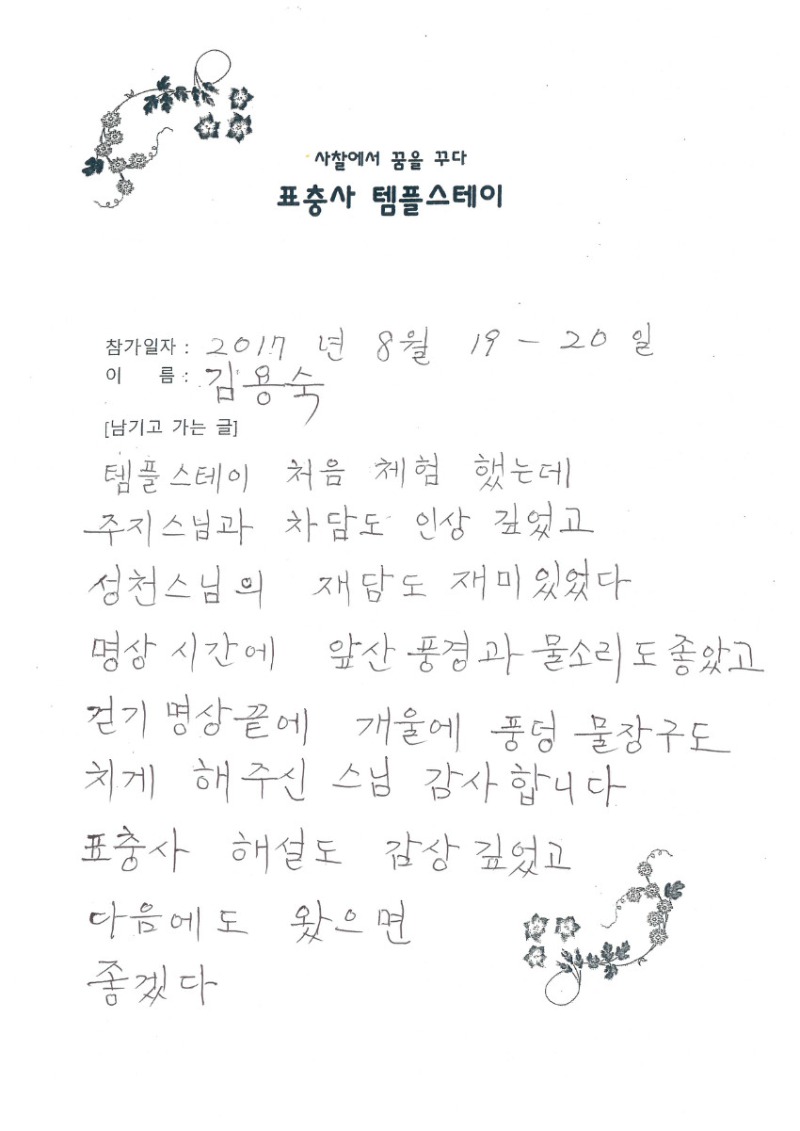 사찰에서 꿈을 꾸다
표충사 템플스테이
참가일자 : 2017 년 8월 19 - 20 일
이 름 : 김용숙
[남기고 가는 글]
템플스테이 처음 체험 했는데
주지스님과 차담도 인상 깊었고
성천스님의 재담도 재미있었다
명상 시간에 앞산 풍경과 물소리도 좋았고
걷기 명상끝에 개울에 풍덩 물장구도
치게 해주신 스님 감사합니다
표충사 해설도 감상 깊었고
다음에도 왔으면
좋겠다